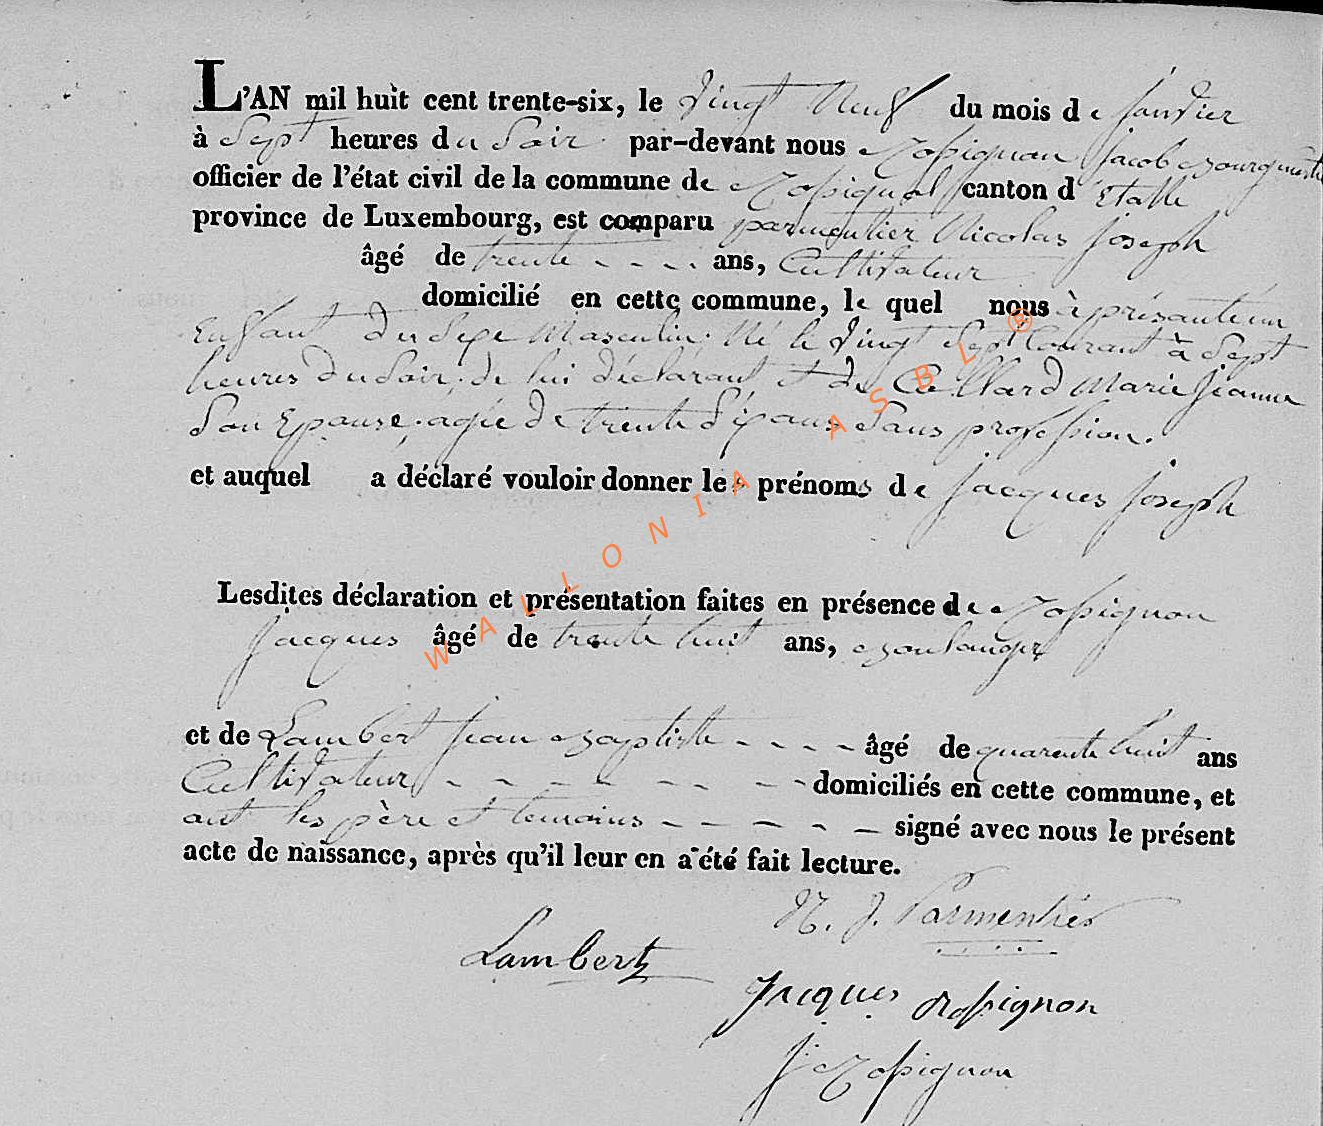 L'AN mil huit cent trente-six, le Vingt Neuf du mois de Janvier
à Sept heures du Soir par-devant nous Rossignon Jacob Bourguemestre
officier de l'état civil de la commune de Rossignol canton d'Etalle
province de Luxembourg, est comparu parmentier Nicolas Joseph
âgé de trente - - - . ans, Cultivateur
domicilié en cette commune, le quel nous à présanté un
Enfant du Sexe Masculin. Né le Vingt Sept Courant à Sept
heures du Soir. de lui déclarant et de Collard Marie Jeanne
Son Epouse. agée de trente Six ans Sans profession.
et auquel a déclaré vouloir donner les prénoms de Jacques Joseph
Lesdites déclaration et présentation faites en présence de Rossignon
Jacques âgé de trente huit ans, Boulanger
et de Lambert Jean Baptiste - - - - âgé de quarente huit ans
Cultivateur - - - - - - - - domiciliés en cette commune, et
ont les père et temoins - - - - - signé avec nous le présent
acte de naissance, après qu'il leur en a été fait lecture.
N. J. Parmentier
Lambert
Jacques Rossignon
J Rossignon
WALLONIA ASBL ®